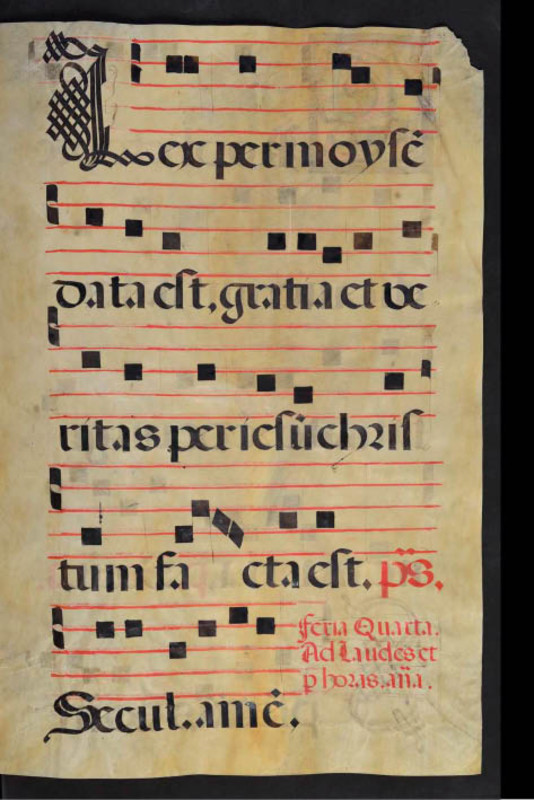 Lex per moysē
data est, gratia et ve
ritas per iesūchris
tum fa cta est. ps̄.
Secul. amē.
Feria Quarta.
Ad Laudes et
p horas. an̄a.